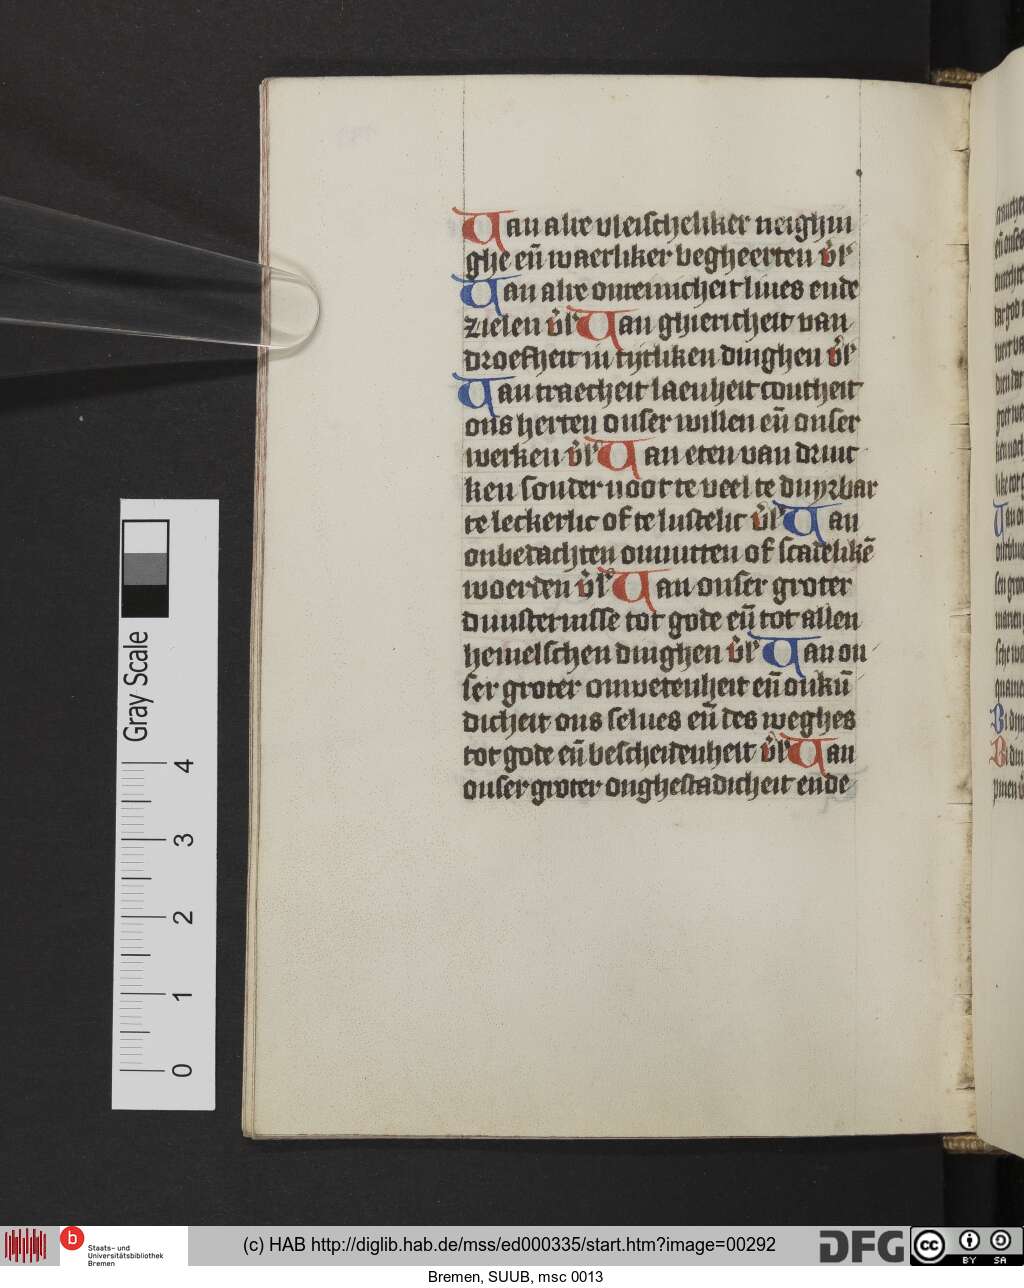 Van alre vleischeliker neighin
ghe eñ waerliker begheerten v̉l'
Van alre onreinicheit liues ende
zielen v̉l' Van ghiericheit van
droefheit in tijtliken dinghen v̉l'
Van traecheit laeuheit coutheit
ons herten onser willen eñ onser
werken v̉l' Van eten van drinc
ken sonder noot te veel te duyrbar
te leckerlic of te lustelic v̉l' Van
onbedachten onnutten of scadelikē
woerden v̉l' Van onser groter
duusternisse tot gode eñ tot allen
hemelschen dinghen v̉l' Van on
ser groter onwetenheit eñ onkū
dicheit ons selues eñ des weghes
tot gode eñ bescheidenheit v̉l' Van
onser groter onghestadicheit ende
Gray Scale
4
3
2
1
0
b
Staats- und
Universitätsbibliothek
Bremen
(c) HAB http://diglib.hab.de/mss/ed000335/start.htm?image=00292
DFG
cc
BY SA
Bremen, SUUB, msc 0013